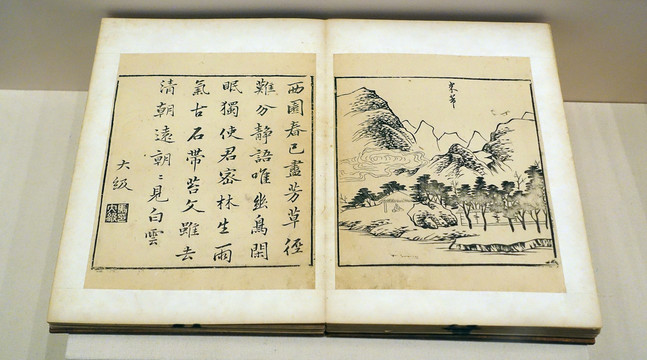 西園春已盡芳草徑
難分靜語唯幽鳥閑
眠獨使君密林生雨
氣古石帶苔文雖去
清朝遠朝〻見白雲
大級